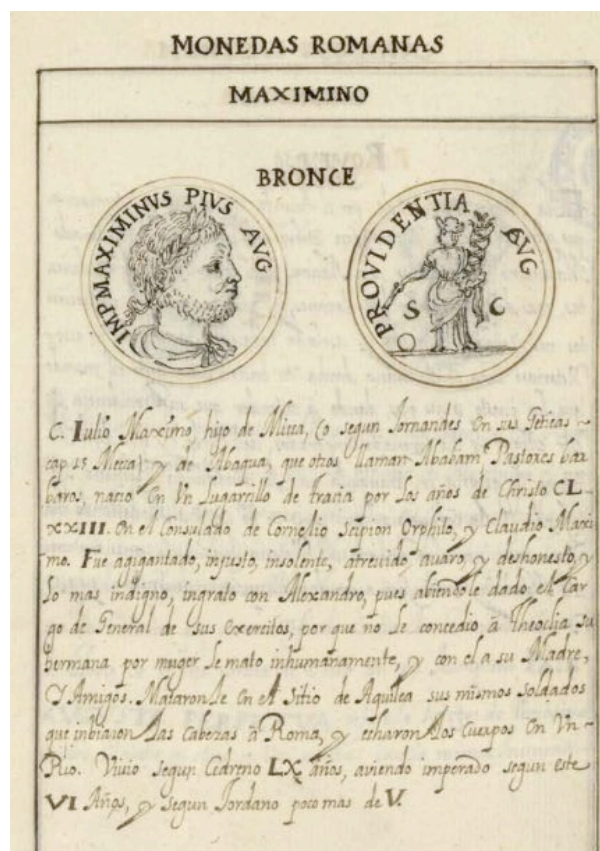 MONEDAS ROMANAS
MAXIMINO
BRONCE
IMP MAXIMINVS PIVS AVG
PROVIDENTIA AVG
S C
C. Iulio Maximo, hijo de Micca, (o segun Iornandes en sus Geticas
cap 15 Mecca) y de Abaqua, que otros llaman Ababam Pastores bar
baros, nacio en Un Lugarrillo de tracia por los años de Christo CL-
XXIII. en el Consulado de Cornelio Scipion Orphito, y Claudio Maxi
mo. Fue agigantado, injusto, insolente, atrevido, avaro, y deshonesto, y
lo mas indigno, ingrato con Alexandro, pues abiendole dado el Car
go de General de sus exercitos, por que no le concedio à Theoclia su
hermana por muger le mato inhumanamente, y con el a su Madre,
y Amigos. Mataronle en el Sitio de Aquilea sus mismos soldados
que inbiaron las cabezas à Roma, y echaron los cuerpos en Un
Rio. Vivio segun Cedreno LX años, aviendo imperado segun este
VI Años, y segun Jordano poco mas de V.